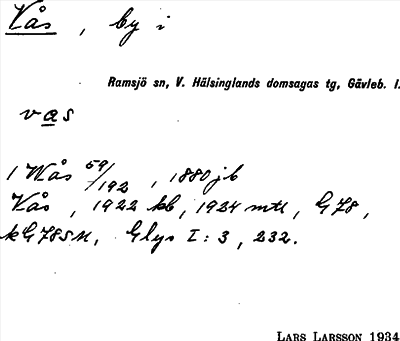 Vås , by i
Ramsjö sn, V. Hälsinglands domsagas tg, Gävleb. l.
vas
1 Wås 59/192 , 1880 jb
Vås , 1922 kb, 1924 mtl, G 78,
kG 78 SM, Glys I : 3 , 232.
LARS LARSSON 1934